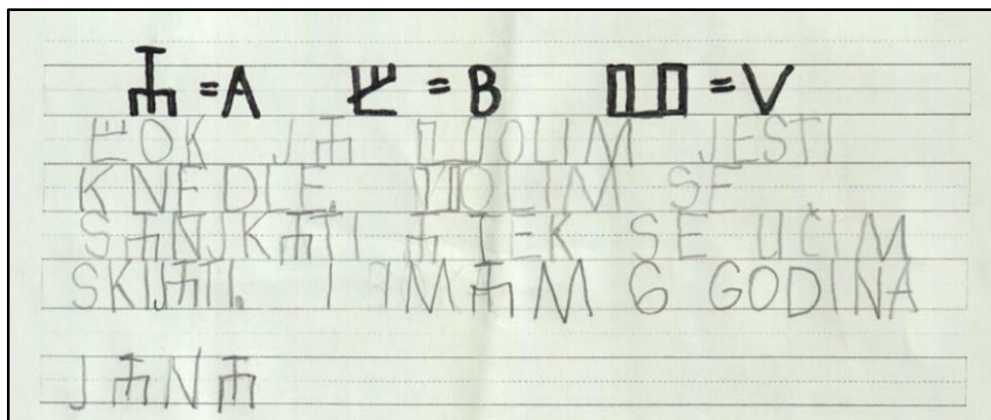 Ⰰ = A Ⰱ = B Ⰲ = V
ⰁOK JⰀ ⰂOLIM JESTI
KNEDLE. ⰂOLIM SE
SⰀNJKⰀTI Ⰰ TEK SE UČIM
SKIJⰀTI. I IMⰀM 6 GODINA
JⰀNⰀ